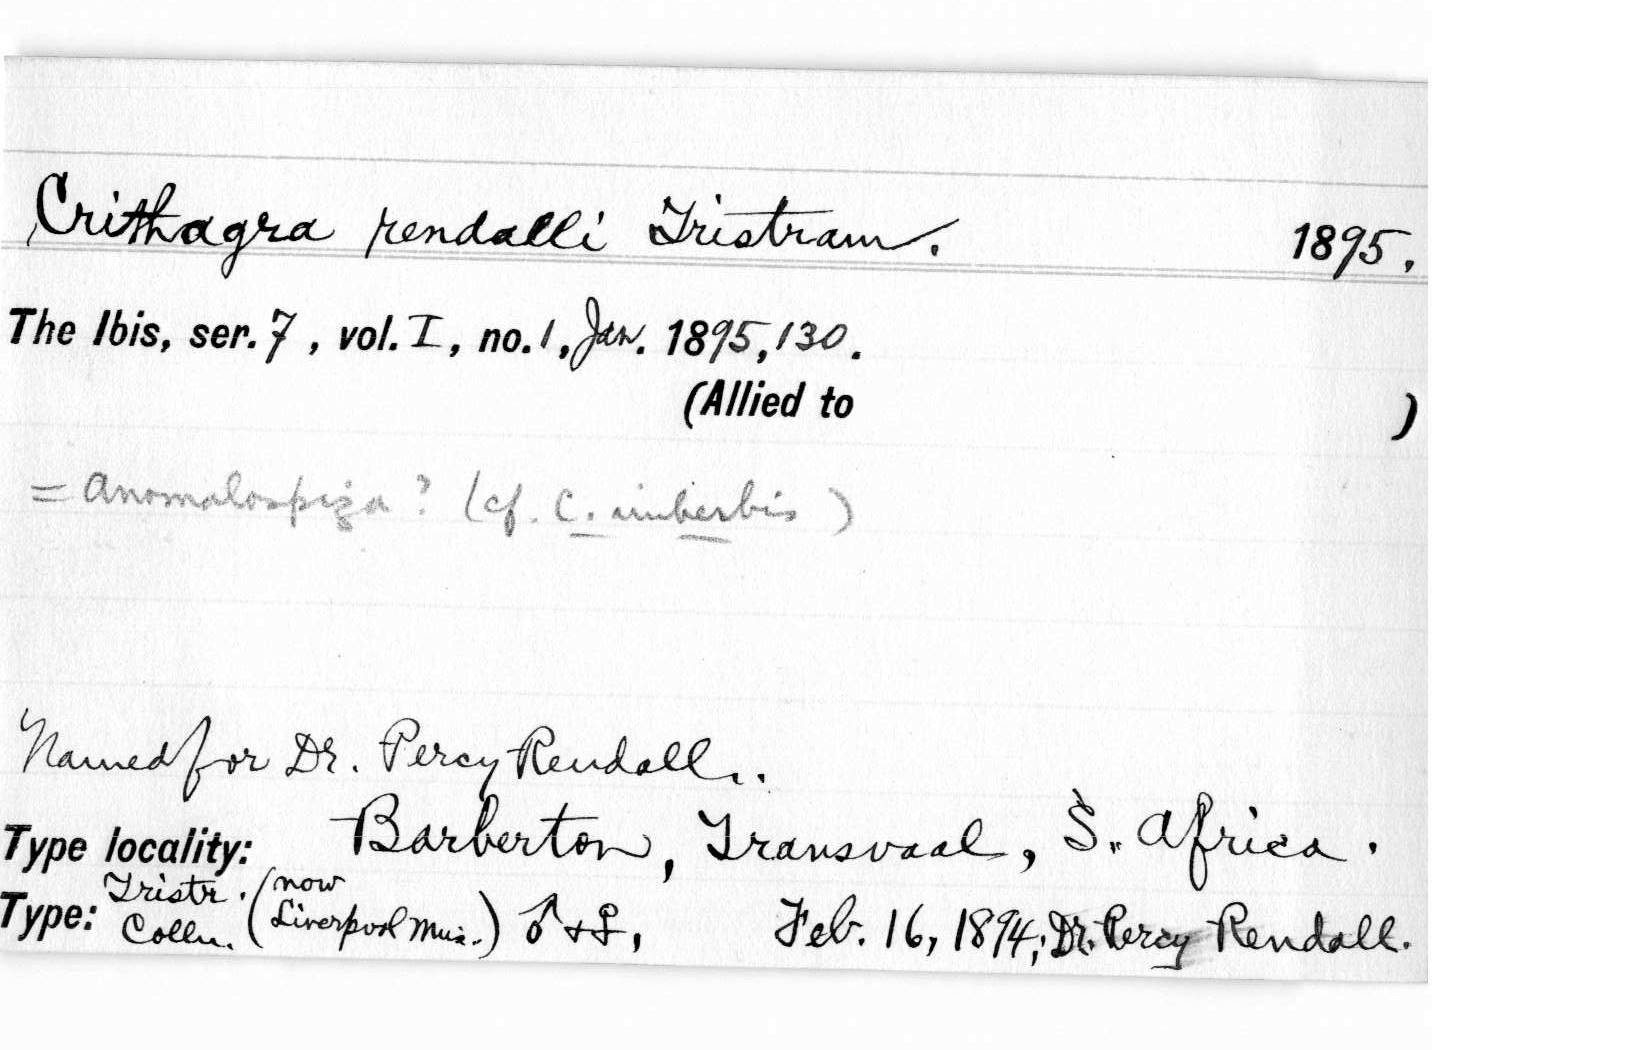 Crithagra rendalli Tristram. 1895.
The Ibis, ser. 7, vol. I, no. 1, Jan. 1895, 130.
(Allied to )
= Anomalospiza? (cf. C. imberbis)
Named for Dr. Percy Rendall.
Type locality: Barberton, Transvaal, S. Africa.
Type: Tristr. Colln. (now Liverpool Mus.) ♂ + ♀, Feb. 16, 1894; Dr. Percy Rendall.